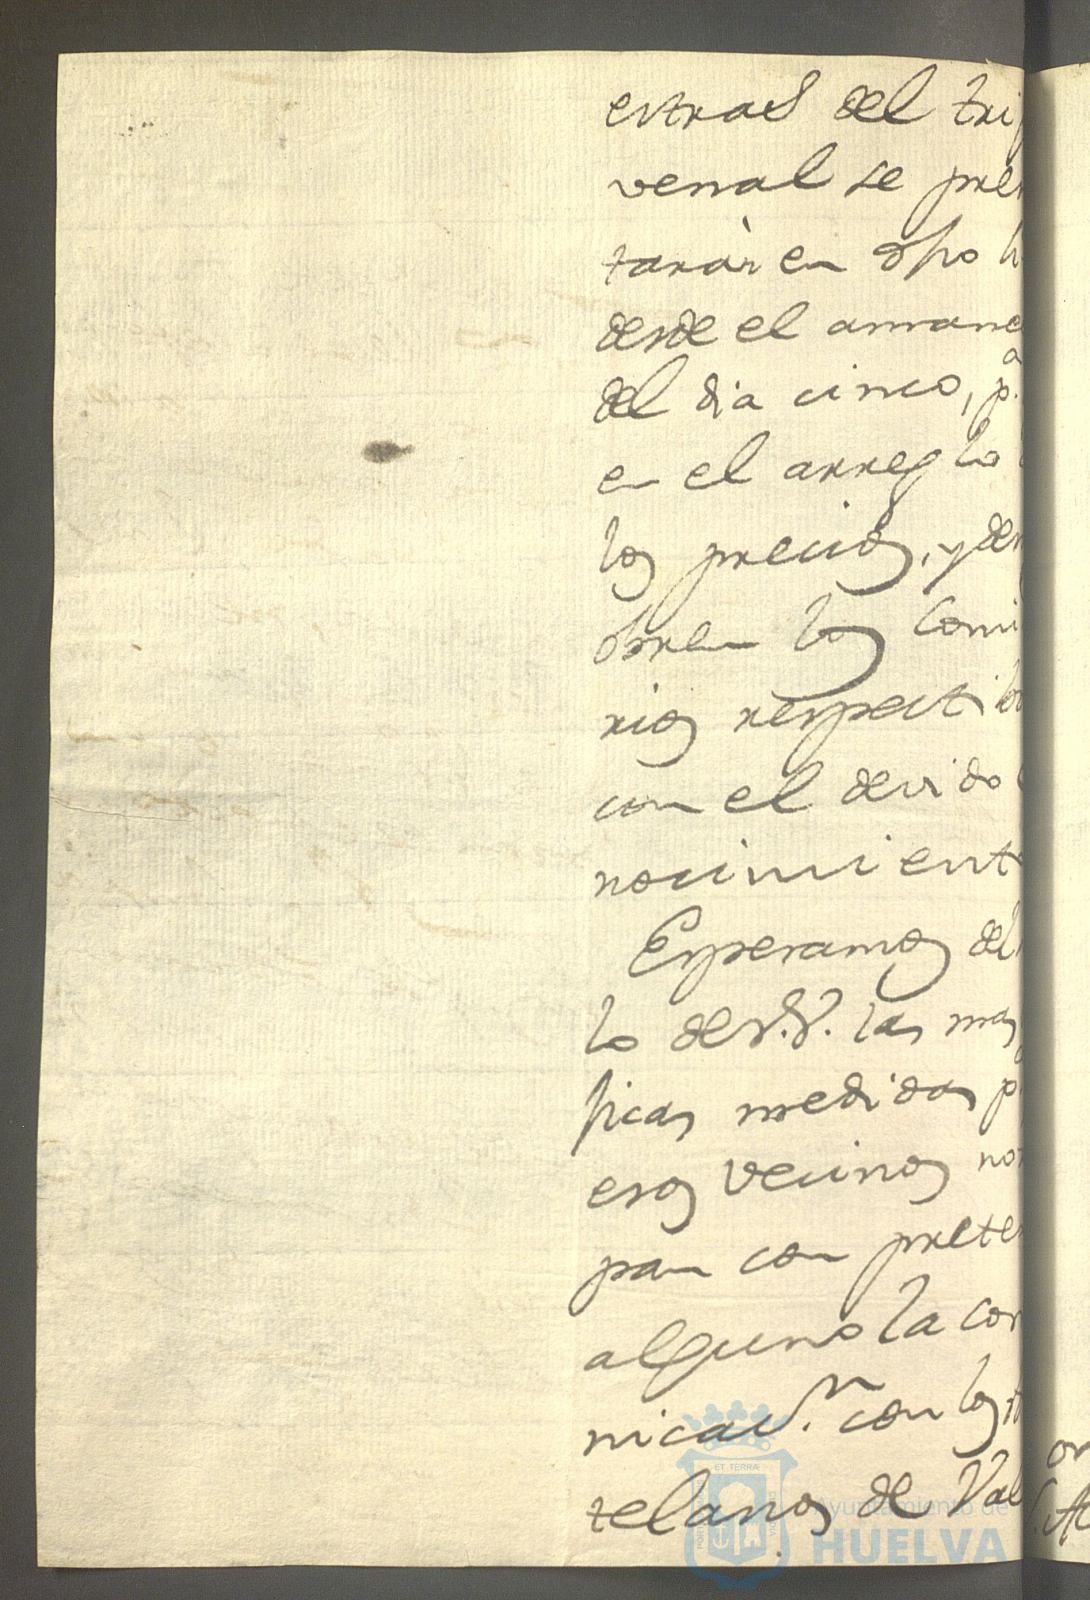 estras del tri
venal se pre
taràn en dho
desde el amane
del dia cinco, p.a
en el arreglo
los precios, y de
obren los Comi
rios respectibo
con el devido
nocimiento
Esperamos del
lo de V.S. las mas
ficas medidas p
esos vecinos no
pan con prete
alguno la co
nicac.n con los
telanos de Val
ET TERRÆ
Ayuntamiento de
HUELVA